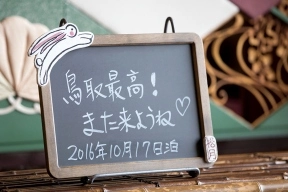 鳥取最高！
また来ようね♡
2016年10月17日泊